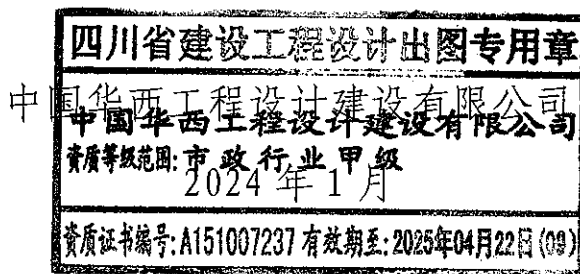 四川省建设工程设计出图专用章
中国华西工程设计建设有限公司
中国华西工程设计建设有限公司
资质等级范围:市政行业甲级
2024 年 1 月
资质证书编号:A151007237 有效期至:2025年04月22日(09)